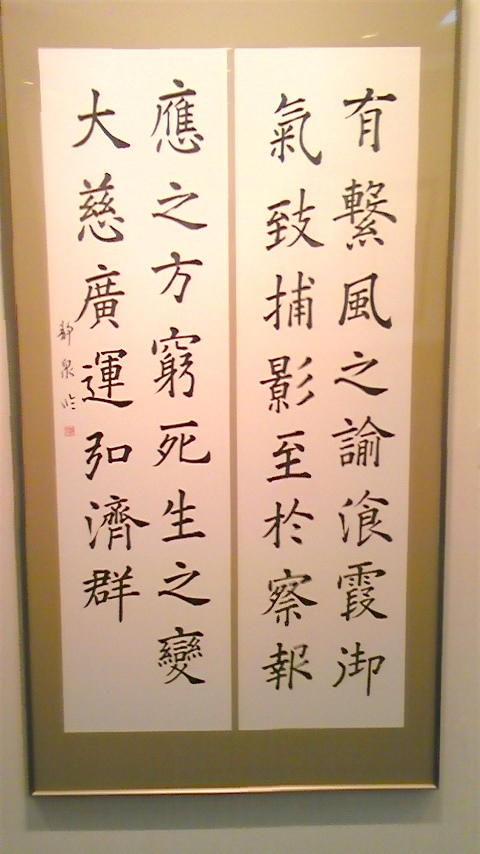 有繫風之諭湌霞御
氣致捕影至於察報
應之方窮死生之變
大慈廣運弘濟群
靜泉